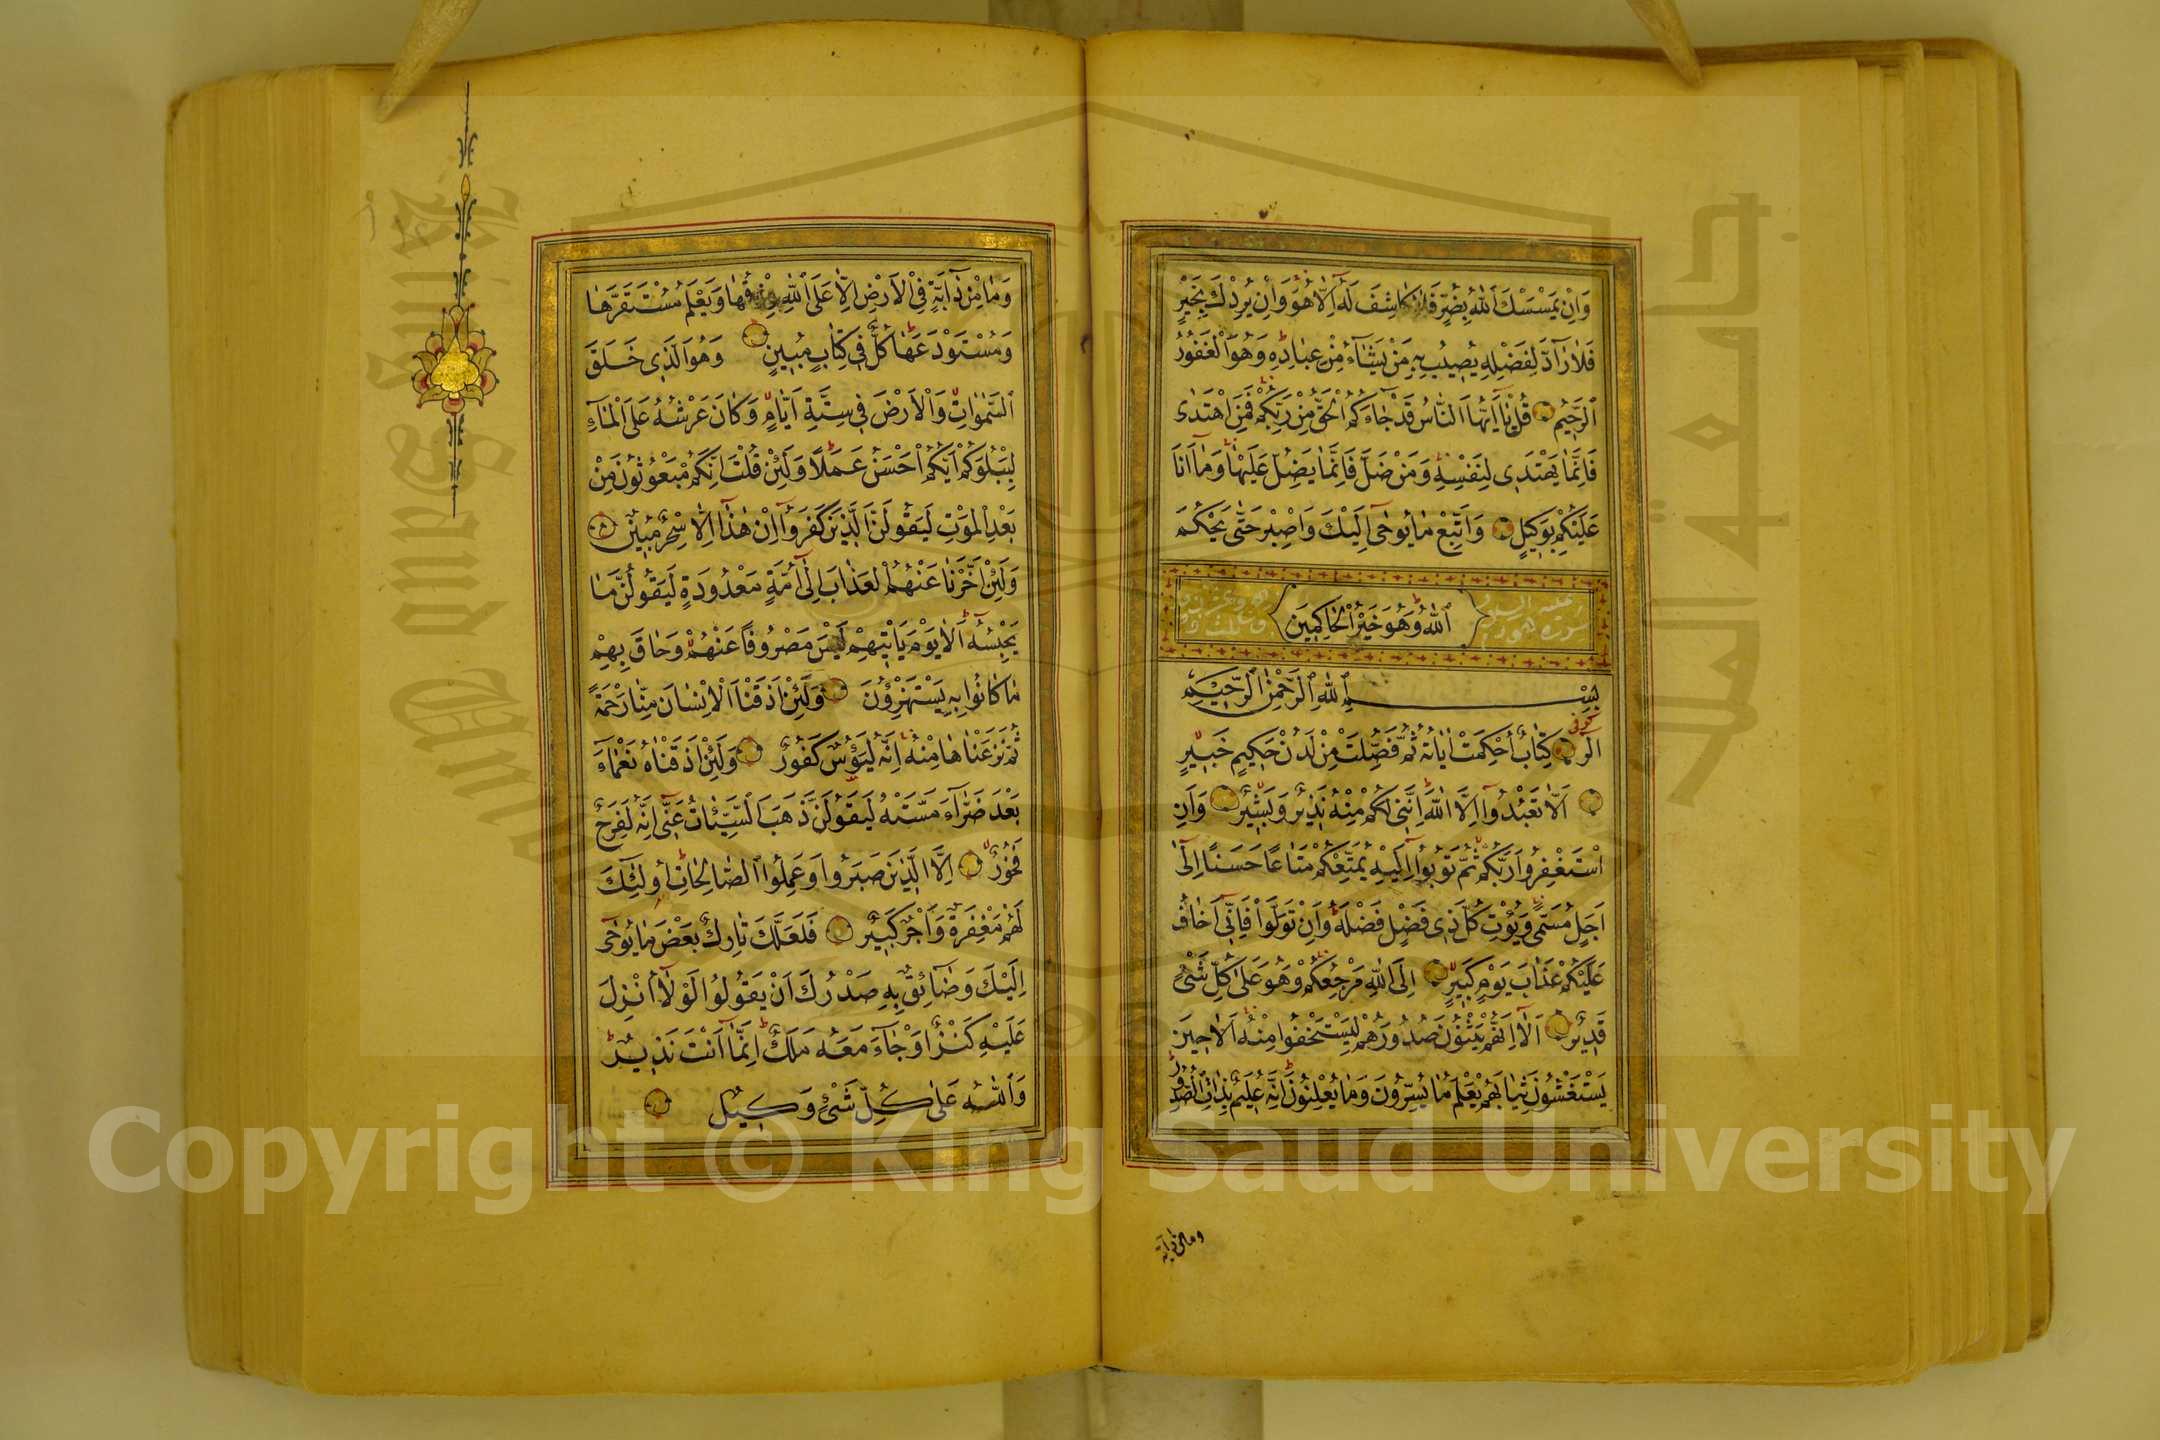 وَاِنْ يَمْسَسْكَ اللّٰهُ بِضُرٍّ فَلَا كَاشِفَ لَهُٓ اِلَّا هُوَ وَاِنْ يُرِدْكَ بِخَيْرٍ
فَلَا رَآدَّ لِفَضْلِهِ يُصِيبُ بِهِ مَنْ يَشَٓاءُ مِنْ عِبَادِهِ وَهُوَ الْغَفُورُ
الرَّحِيمُ قُلْ يَٓا اَيُّهَا النَّاسُ قَدْ جَٓاءَكُمُ الْحَقُّ مِنْ رَبِّكُمْ فَمَنِ اهْتَدٰى
فَاِنَّمَا يَهْتَدِي لِنَفْسِهِ وَمَنْ ضَلَّ فَاِنَّمَا يَضِلُّ عَلَيْهَا وَمَٓا اَنَا
عَلَيْكُمْ بِوَكِيلٍ وَاتَّبِعْ مَا يُوحٰٓى اِلَيْكَ وَاصْبِرْ حَتّٰى يَحْكُمَ
اللّٰهُ وَهُوَ خَيْرُ الْحَاكِمِينَ
بِسْمِ اللّٰهِ الرَّحْمٰنِ الرَّحِيمِ
الٓرٰ كِتَابٌ اُحْكِمَتْ اٰيَاتُهُ ثُمَّ فُصِّلَتْ مِنْ لَدُنْ حَكِيمٍ خَبِيرٍ
اَلَّا تَعْبُدُٓوا اِلَّا اللّٰهَ اِنَّنِي لَكُمْ مِنْهُ نَذِيرٌ وَبَشِيرٌ وَاَنِ
اسْتَغْفِرُوا رَبَّكُمْ ثُمَّ تُوبُٓوا اِلَيْهِ يُمَتِّعْكُمْ مَتَاعًا حَسَنًا اِلٰٓى
اَجَلٍ مُسَمًّى وَيُؤْتِ كُلَّ ذِي فَضْلٍ فَضْلَهُ وَاِنْ تَوَلَّوْا فَاِنِّٓي اَخَافُ
عَلَيْكُمْ عَذَابَ يَوْمٍ كَبِيرٍ اِلَى اللّٰهِ مَرْجِعُكُمْ وَهُوَ عَلٰى كُلِّ شَيْءٍ
قَدِيرٌ اَلَٓا اِنَّهُمْ يَثْنُونَ صُدُورَهُمْ لِيَسْتَخْفُوا مِنْهُ اَلَا حِينَ
يَسْتَغْشُونَ ثِيَابَهُمْ يَعْلَمُ مَا يُسِرُّونَ وَمَا يُعْلِنُونَ اِنَّهُ عَلِيمٌ بِذَاتِ الصُّدُورِ
وما من دآبة
وَمَا مِنْ دَٓابَّةٍ فِي الْاَرْضِ اِلَّا عَلَى اللّٰهِ رِزْقُهَا وَيَعْلَمُ مُسْتَقَرَّهَا
وَمُسْتَوْدَعَهَا كُلٌّ فِي كِتَابٍ مُبِينٍ وَهُوَ الَّذِي خَلَقَ
السَّمٰوَاتِ وَالْاَرْضَ فِي سِتَّةِ اَيَّامٍ وَكَانَ عَرْشُهُ عَلَى الْمَٓاءِ
لِيَبْلُوَكُمْ اَيُّكُمْ اَحْسَنُ عَمَلًا وَلَئِنْ قُلْتَ اِنَّكُمْ مَبْعُوثُونَ مِنْ
بَعْدِ الْمَوْتِ لَيَقُولَنَّ الَّذِينَ كَفَرُٓوا اِنْ هٰذَٓا اِلَّا سِحْرٌ مُبِينٌ
وَلَئِنْ اَخَّرْنَا عَنْهُمُ الْعَذَابَ اِلٰٓى اُمَّةٍ مَعْدُودَةٍ لَيَقُولُنَّ مَا
يَحْبِسُهُ اَلَا يَوْمَ يَأْتِيهِمْ لَيْسَ مَصْرُوفًا عَنْهُمْ وَحَاقَ بِهِمْ
مَا كَانُوا بِهِ يَسْتَهْزِؤُنَ وَلَئِنْ اَذَقْنَا الْاِنْسَانَ مِنَّا رَحْمَةً
ثُمَّ نَزَعْنَاهَا مِنْهُ اِنَّهُ لَيَؤُسٌ كَفُورٌ وَلَئِنْ اَذَقْنَاهُ نَعْمَٓاءَ
بَعْدَ ضَرَّٓاءَ مَسَّتْهُ لَيَقُولَنَّ ذَهَبَ السَّيِّئَاتُ عَنِّي اِنَّهُ لَفَرِحٌ
فَخُورٌ اِلَّا الَّذِينَ صَبَرُوا وَعَمِلُوا الصَّالِحَاتِ اُولٰٓئِكَ
لَهُمْ مَغْفِرَةٌ وَاَجْرٌ كَبِيرٌ فَلَعَلَّكَ تَارِكٌ بَعْضَ مَا يُوحٰٓى
اِلَيْكَ وَضَٓائِقٌ بِهِ صَدْرُكَ اَنْ يَقُولُوا لَوْلَٓا اُنْزِلَ
عَلَيْهِ كَنْزٌ اَوْ جَٓاءَ مَعَهُ مَلَكٌ اِنَّمَٓا اَنْتَ نَذِيرٌ
وَاللّٰهُ عَلٰى كُلِّ شَيْءٍ وَكِيلٌ
King Saud University
جامعة الملك
Copyright © King Saud University